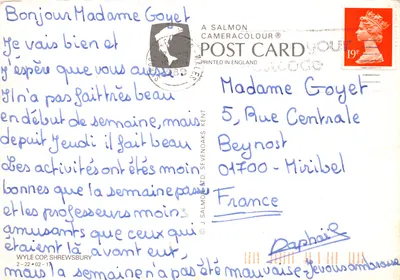 Bonjour Madame Goyet
Je vais bien et
j'éspère que vous aussi
Il n'a pas fait très beau
en début de semaine, mais
depuit Jeudi il fait beau
Les activités ont étés moin
bonnes que la semaine passé
et les professeurs moins
amusants que ceux qui
étaient là avant eux,
mais la semaine n'a pas été mauvaise. Je vous embrasse
Raphaël
WYLE COP, SHREWSBURY
2-22-02-11
A SALMON
CAMERACOLOUR®
POST CARD
PRINTED IN ENGLAND
© J SALMON LTD. SEVENOAKS, KENT
19p
Madame Goyet
5, Rue Centrale
Beynost
01700-Miribel
France